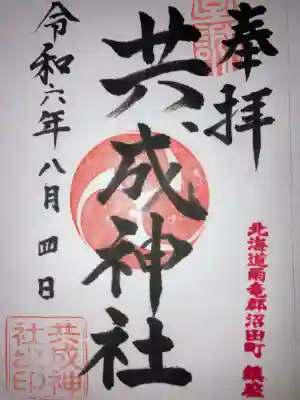 奉拝
共成神社
令和六年八月四日
北海道雨竜郡沼田町 鎮座
共成神
社之印